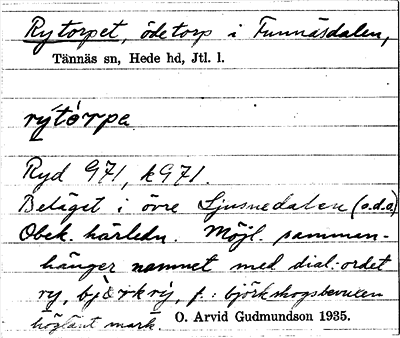 Rytorpet, ödetorp i Funnäsdalen,
Tännäs sn, Hede hd, Jtl. l.
rýtòrpe
Ryd 971, k971.
Beläget i övre Ljusnedalen (o.d.o)
Obek. härledn. Möjl. samman-
hänger namnet med dial. ordet
ry, bjòrkrý, f.: björkskogsbevuxen
höglänt mark. O. Arvid Gudmundson 1935.